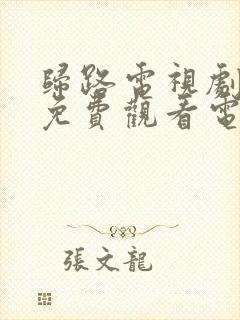 歸路電視劇
免費觀看電
張文龍